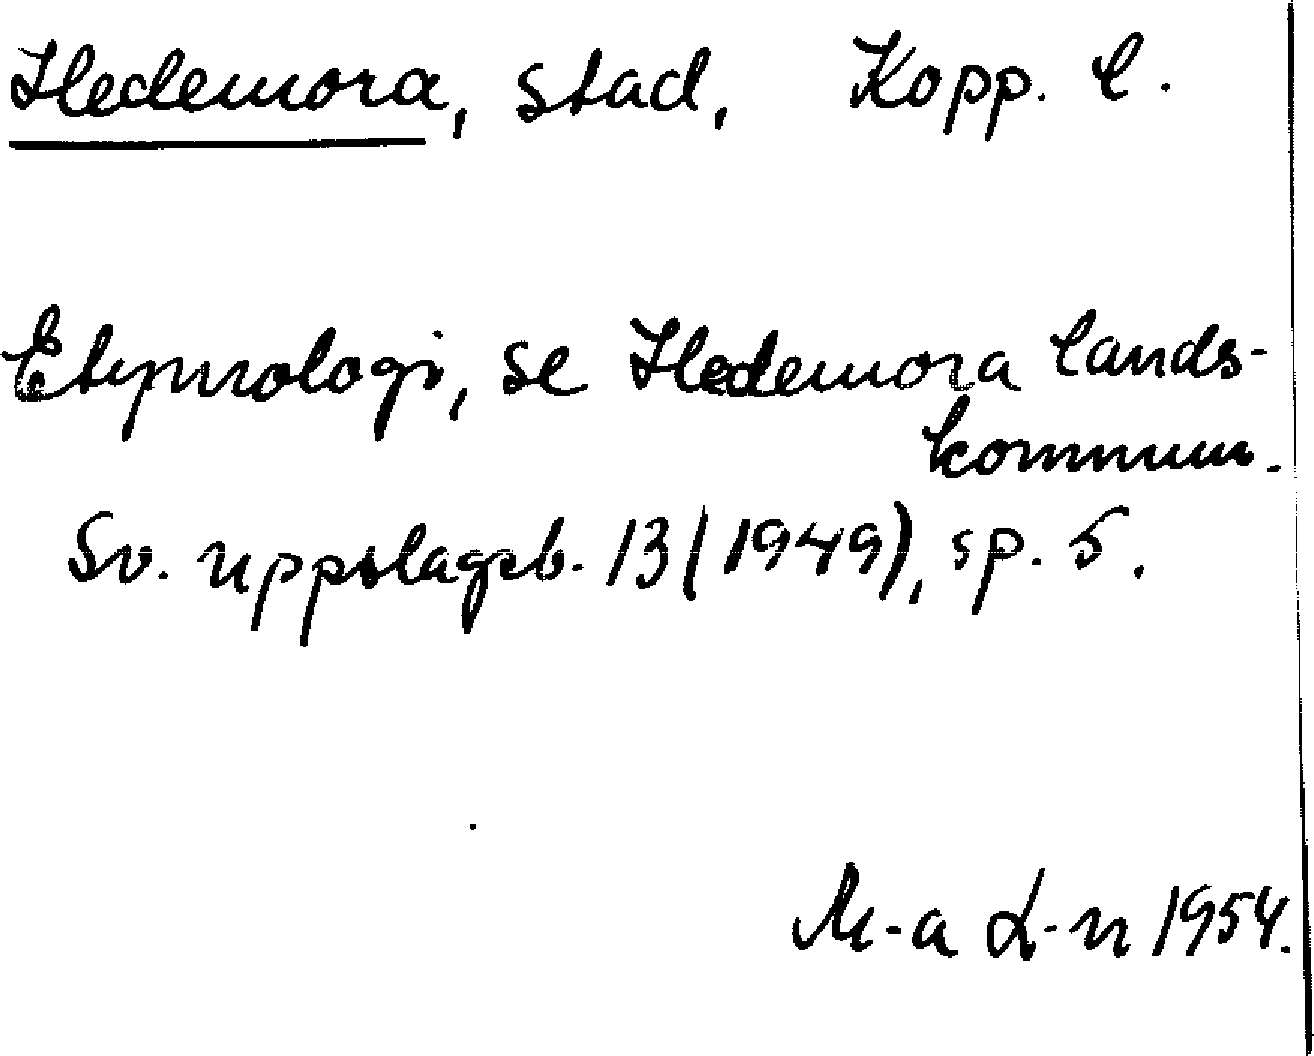 Hedemora, stad, Kopp. l.
Etymologi, se Hedemora lands-
kommun.
Sv. uppslagsb. 13 (1949), sp. 5.
M-a L-n 1954.